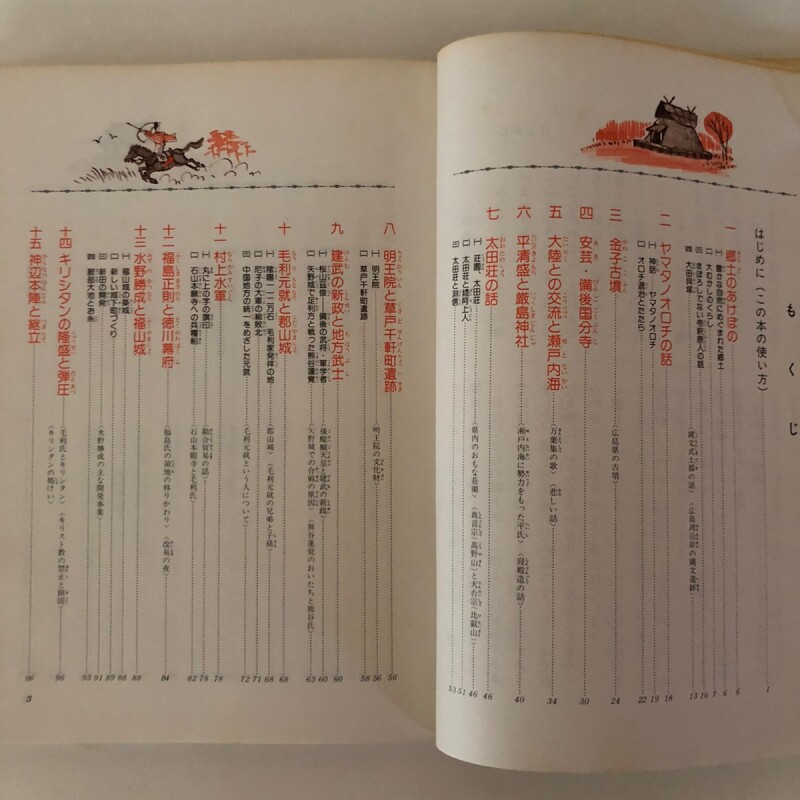 もくじ
はじめに（この本の使い方） 1
一 郷土のあけぼの 6
㈠ 豊かな自然にめぐまれた郷土 6
㈡ 大むかしのくらし 7
〈縄文式土器の話〉
㈢ まぼろしでない帝釈原人の話 10
㈣ 太田貝塚 13
二 ヤマタノオロチの話 18
㈠ 神話 ヤマタノオロチ 19
㈡ オロチ退治とたたら 22
三 金子古墳 24
〈広島県の古墳〉
四 安芸・備後国分寺 30
五 大陸との交流と瀬戸内海 34
〈万葉集の歌〉〈悲しい話〉
六 平清盛と厳島神社 40
〈瀬戸内海に勢力をもった平氏〉
七 太田荘の話 46
㈠ 荘園、太田荘 46
〈県内のおもな荘園〉〈真言宗（高野山）と天台宗（比叡山）〉
㈡ 太田荘と綾阿上人 51
㈢ 太田荘と源信 53
八 明王院と草戸千軒町遺跡 56
㈠ 明王院 56
〈明王院の文化財〉
㈡ 草戸千軒町遺跡 58
九 建武の新政と地方武士 60
㈠ 桜山茲俊――備後の武将・軍学者 60
〈後醍醐天皇と建武の新政〉
㈡ 矢野城で足利方と戦った熊谷蓮覚 63
〈矢野城での合戦の原因〉〈熊谷蓮覚のおいたちと熊谷氏〉
十 毛利元就と郡山城 68
㈠ 陰徳一一二万石 毛利家発祥の地 68
〈郡山城〉〈毛利元就の兄弟と子孫〉
㈡ 尼子の大軍の総敗北 71
㈢ 中国地方の統一をめざした元就 72
〈毛利元就という人について〉
十一 村上水軍 78
㈠ 丸に上の字の旗印 78
〈勘合貿易の話〉
㈡ 石山本願寺への兵糧船 82
〈石山本願寺と毛利氏〉
十二 福島正則と徳川幕府 84
〈福島氏の領地の移りかわり〉〈改易の夜〉
十三 水野勝成と福山城 88
㈠ 福山城の築城 88
㈡ 新しい城下町づくり 89
㈢ 新田の開発 91
〈水野勝成の主な開発事業〉
㈣ 服部大池とお糸 93
十四 キリシタンの隆盛と弾圧 96
〈毛利氏とキリシタン〉〈キリスト教の禁止と鎖国〉
〈キリシタンの焼けい〉
十五 神辺本陣と継立
3